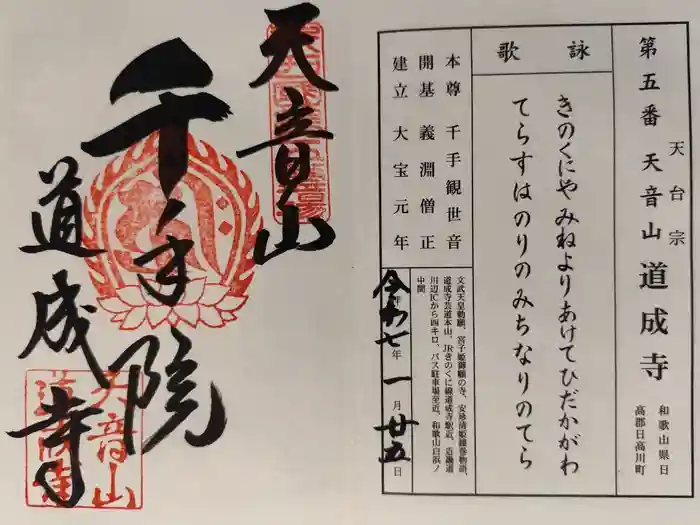 第五番 天音山 道成寺
天台宗
和歌山県日
高郡日高川町
詠歌
きのくにや みねよりあけてひだかがわ
てらすはのりのみちなりのてら
本尊 千手観世音
開基 義淵僧正
建立 大宝元年
文武天皇勅願、宮子姫御願の寺、安珍清姫縁巻物語、
道成寺芸道本山。JRきのくに線道成寺駅近、近畿道
川辺ICから四キロ、バス駐車場至近。和歌山白浜ノ
中間
令和七年 一月廿五日
天音山
千手院
道成寺
天音山